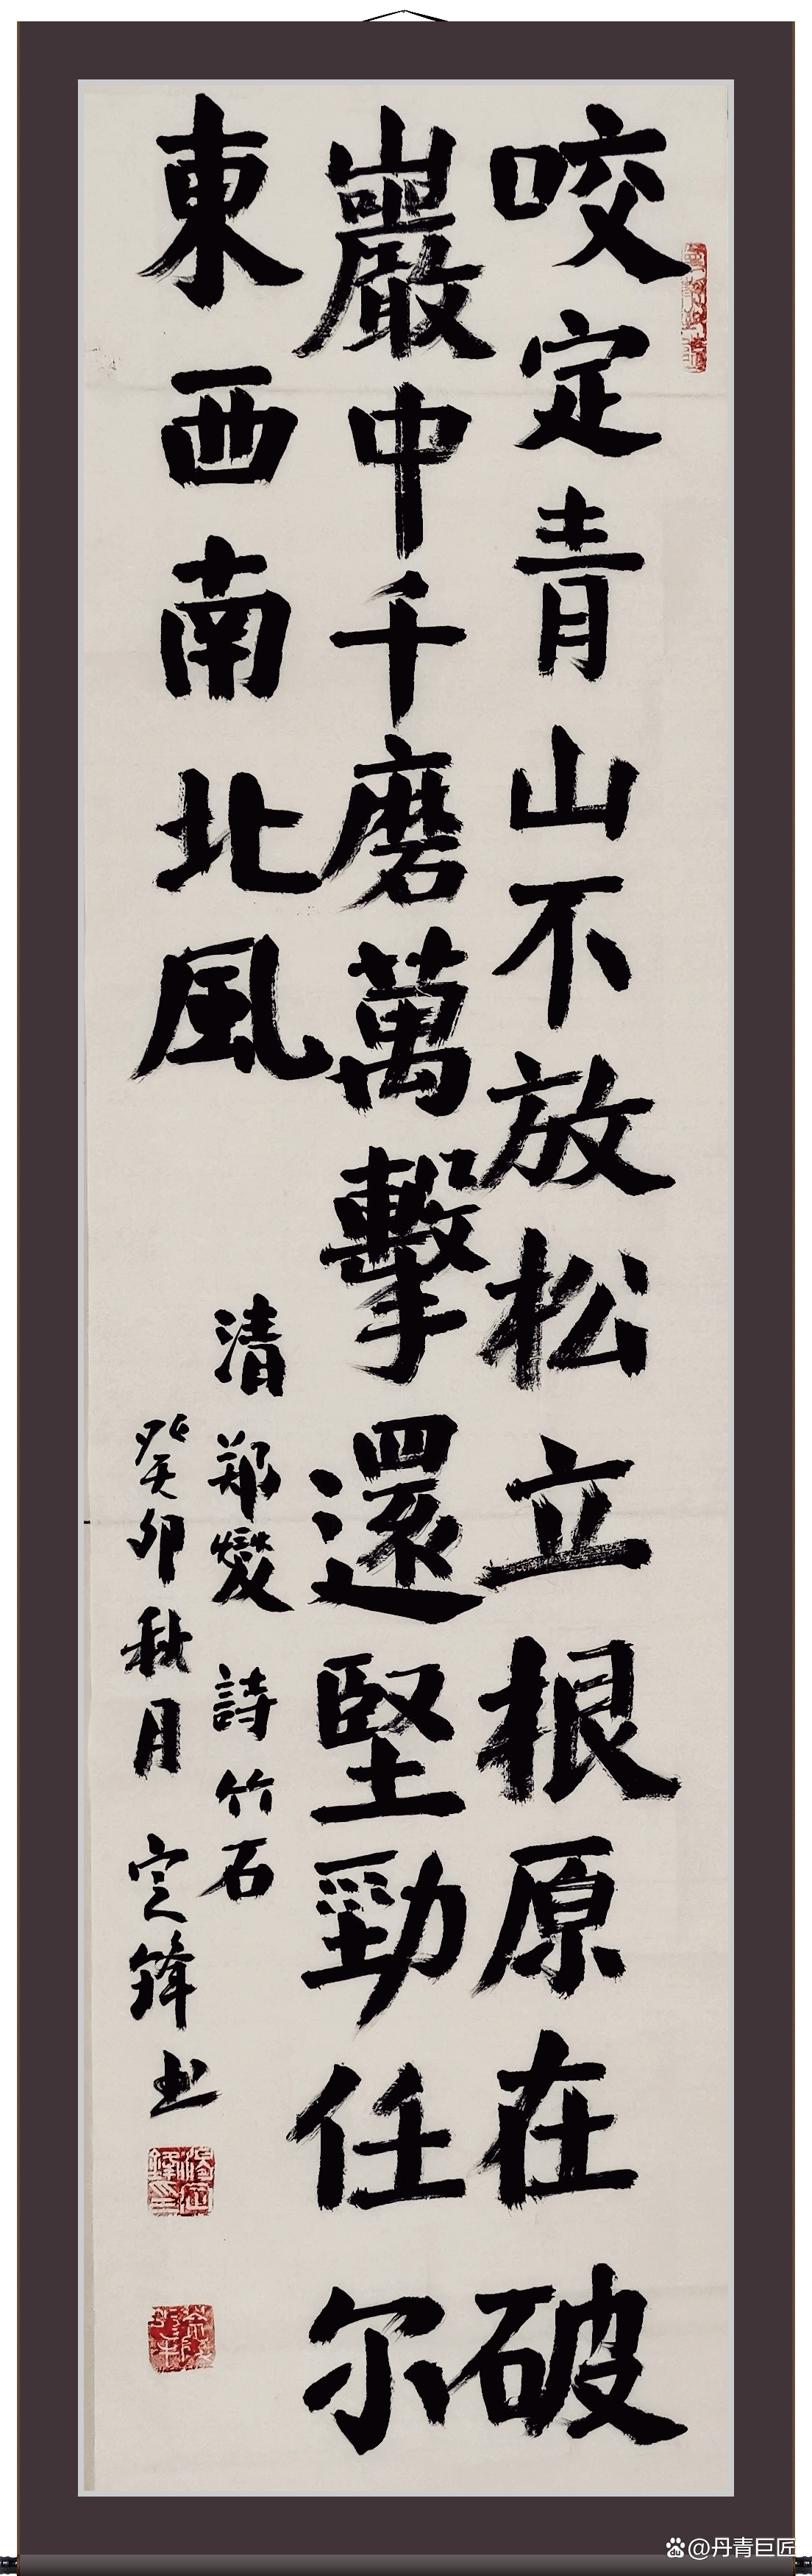 咬定青山不放松立根原在破
巖中千磨萬擊還堅勁任尔
東西南北風
清郑燮詩竹石
癸卯秋月定鋒书
@丹青巨匠